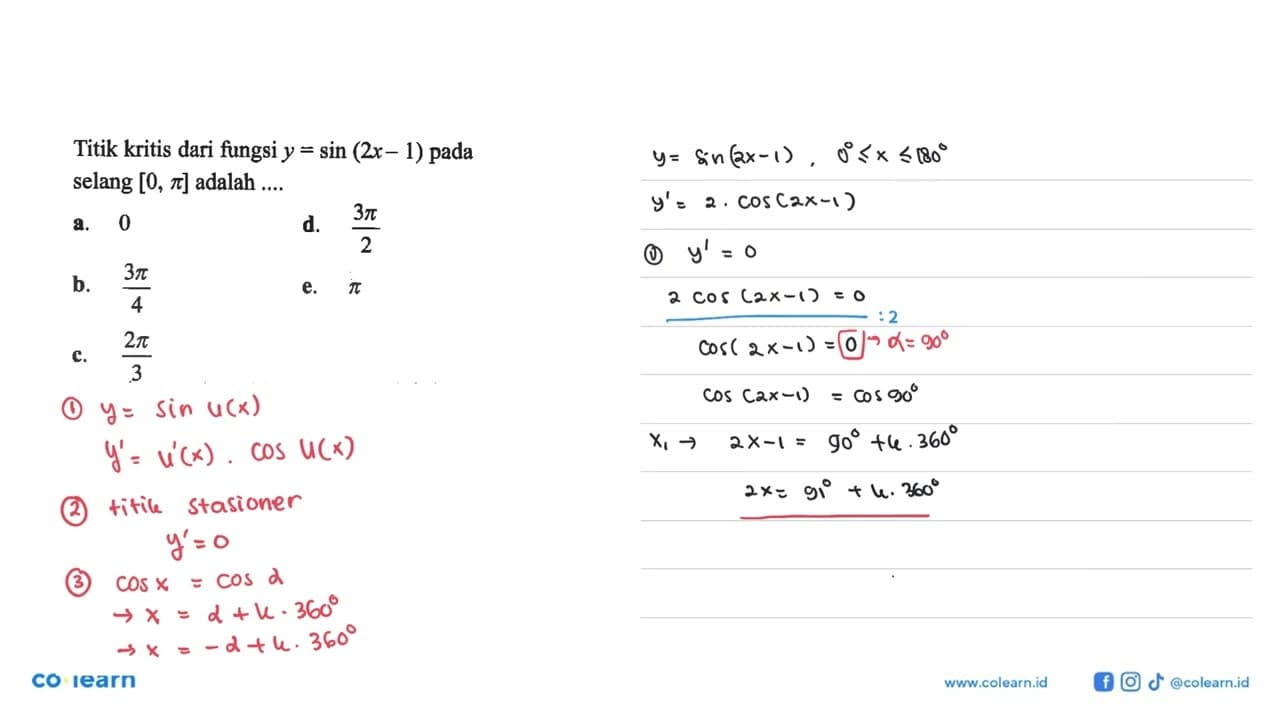 Titik kritis dari fungsi y = sin (2x – 1) pada
selang [0, π] adalah ....
a. 0
b. 3π/4
c. 2π/3
d. 3π/2
e. π
① y = sin u(x)
y' = u'(x) . cos u(x)
② titik stasioner
y' = 0
③ cos x = cos α
→ x = α + k . 360°
→ x = -α + k . 360°
y = sin(2x-1) , 0° ≤ x ≤ 180°
y' = 2 . cos(2x-1)
① y' = 0
2 cos (2x-1) = 0
: 2
cos( 2x-1) = 0 → α = 90°
cos (2x-1) = cos 90°
x₁ → 2x-1 = 90° + k . 360°
2x = 91° + k . 360°
colearn
www.colearn.id
@colearn.id